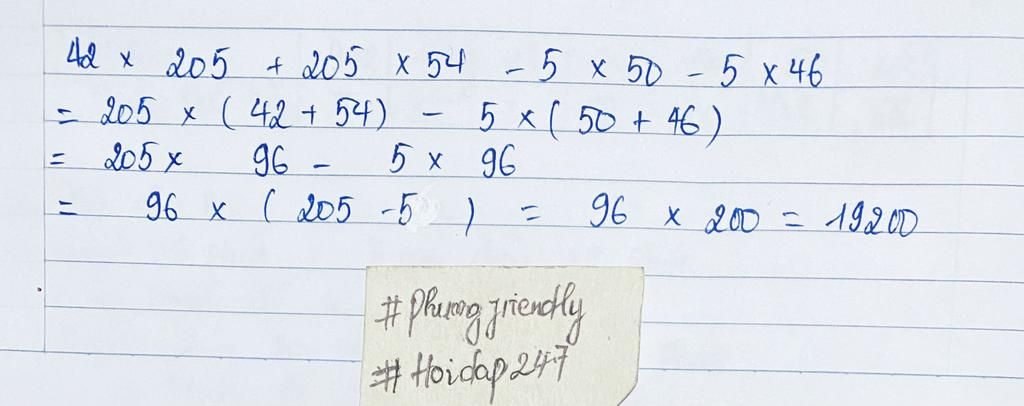 42 × 205 + 205 × 54 - 5 × 50 - 5 × 46
= 205 × ( 42 + 54) - 5 × ( 50 + 46 )
= 205 × 96 - 5 × 96
= 96 × ( 205 - 5 ) = 96 × 200 = 19200
# Phuong friendly
# Hoidap247